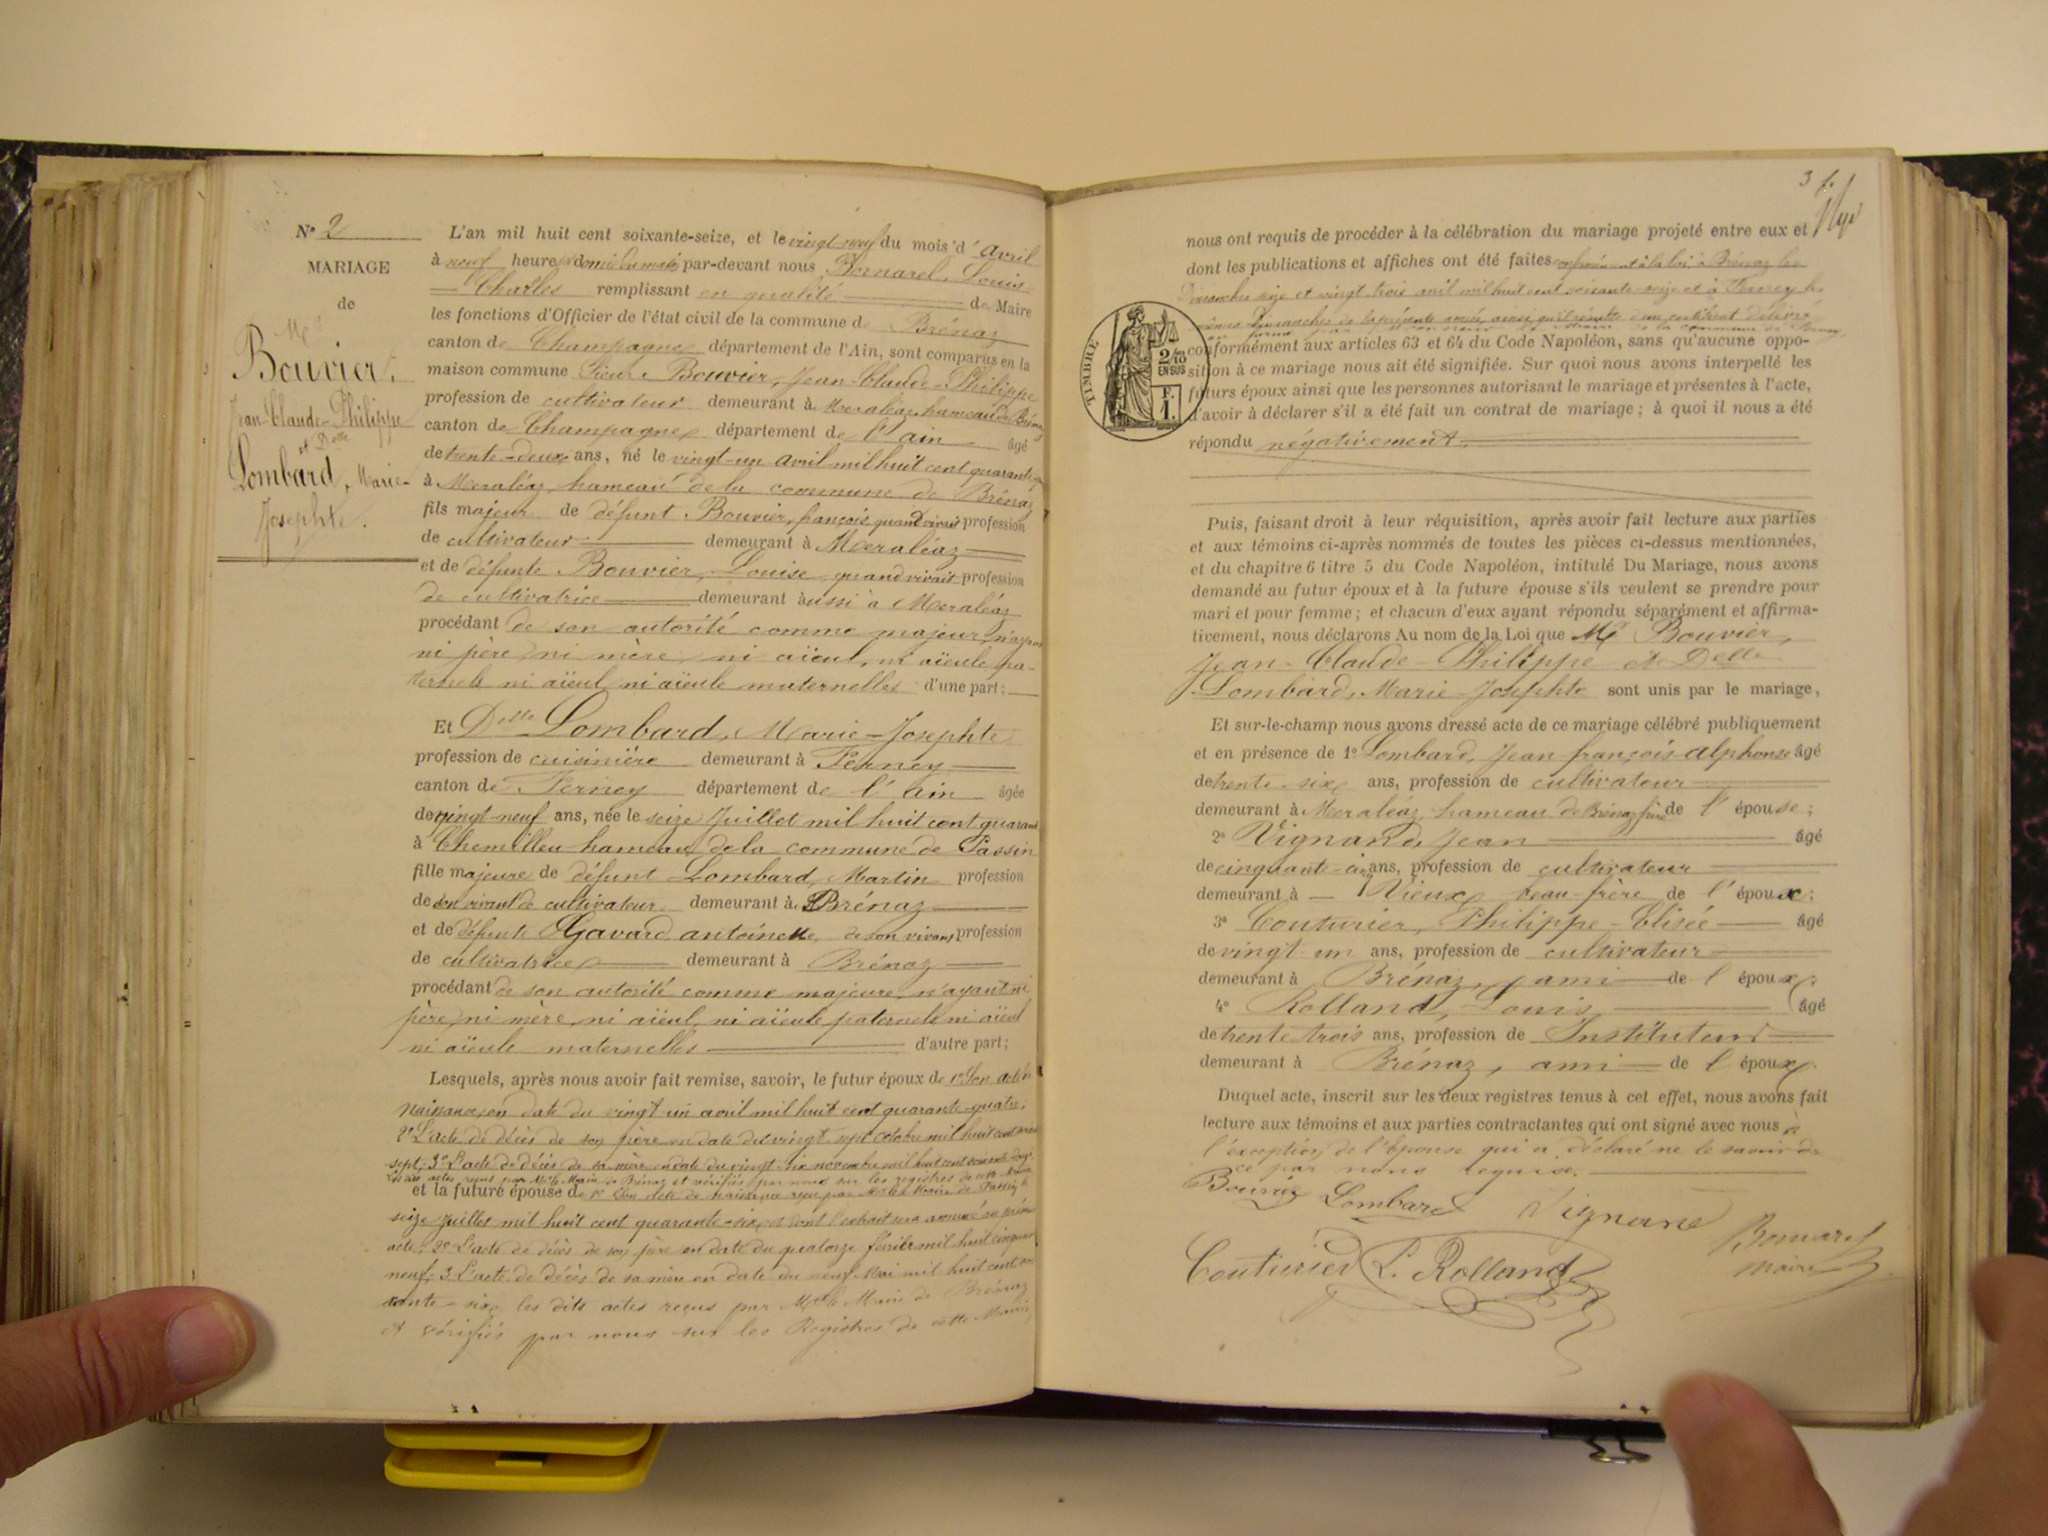 N° 2
MARIAGE
de
Mr
Bouvier,
Jean-Claude-Philippe
et Delle
Lombard, Marie-
Josephte.
L'an mil huit cent soixante-seize, et le vingt-neuf du mois d'avril
à neuf heures du matin par-devant nous Bornarel, Louis
Charles remplissant en qualité de Maire
les fonctions d'Officier de l'état civil de la commune de Brénaz
canton de Champagne département de l'Ain, sont comparus en la
maison commune Sieur Bouvier, Jean-Claude-Philippe
profession de cultivateur demeurant à Meraléaz hameau de Brénaz
canton de Champagne département de l'ain âgé
de trente-deux ans, né le vingt-un avril mil huit cent quarante
à Meraléaz, hameau de la commune de Brénaz
fils majeur de défunt Bouvier, françois, quand vivait profession
de cultivateur demeurant à Meraléaz
et de défunte Bouvier, Louise, quand vivait profession
de cultivatrice demeurant aussi à Meraléaz
procédant de son autorité comme majeur, n'ayant
ni père, ni mère, ni aïeul, ni aïeule pa-
ternels ni aïeul, ni aïeule maternelles d'une part;
Et Delle Lombard, Marie-Josephte
profession de cuisinière demeurant à Ferney
canton de Ferney département de l'ain âgée
de vingt-neuf ans, née le seize Juillet mil huit cent quarante
à Chemilleu hameau de la commune de Passin
fille majeure de défunt Lombard, Martin profession
de son vivant de cultivateur demeurant à Brénaz
et de défunte Gavard antoinette, de son vivant profession
de cultivatrice demeurant à Brénaz
procédant de son autorité comme majeure, n'ayant ni
père, ni mère, ni aïeul, ni aïeule paternels ni aïeul
ni aïeule maternelles d'autre part;
Lesquels, après nous avoir fait remise, savoir, le futur époux de 1° Son acte de
naissance, en date du vingt-un avril mil huit cent quarante-quatre;
2° L'acte de décès de son père en date du vingt-sept octobre mil huit cent
sept; 3° L'acte de décès de sa mère en date du vingt-six novembre mil huit cent soixante
Les dits actes reçus par Mr le Maire de Brénaz et vérifiés par nous sur les registres de cette Mairie
et la future épouse de 1° Son acte de naissance reçu par Mr le Maire de Passin le
seize Juillet mil huit cent quarante-six, et dont l'extrait sera annexé au présent
acte; 2° L'acte de décès de son père en date du quatorze février mil huit cinquante
neuf; 3° L'acte de décès de sa mère en date du neuf Mai mil huit cent soi
xante-six, les dits actes reçus par Mr le Maire de Brénaz
et vérifiés par nous sur les Registres de cette Mairie
3
nous ont requis de procéder à la célébration du mariage projeté entre eux et
dont les publications et affiches ont été faites conformément à la loi à Brénaz les
Dimanches seize et vingt-trois avril mil huit cent soixante-seize et à Ferney les
mêmes Dimanches de la présente année, ainsi qu'il résulte d'un certificat délivré
par Monsieur le Maire de la commune de Ferney
conformément aux articles 63 et 64 du Code Napoléon, sans qu'aucune oppo-
sition à ce mariage nous ait été signifiée. Sur quoi nous avons interpellé les
futurs époux ainsi que les personnes autorisant le mariage et présentes à l'acte,
d'avoir à déclarer s'il a été fait un contrat de mariage; à quoi il nous a été
répondu négativement.
TIMBRE
2/10
EN SUS
F.
1.
Puis, faisant droit à leur réquisition, après avoir fait lecture aux parties
et aux témoins ci-après nommés de toutes les pièces ci-dessus mentionnées,
et du chapitre 6 titre 5 du Code Napoléon, intitulé Du Mariage, nous avons
demandé au futur époux et à la future épouse s'ils veulent se prendre pour
mari et pour femme; et chacun d'eux ayant répondu séparément et affirma-
tivement, nous déclarons Au nom de la Loi que Mr Bouvier,
Jean-Claude-Philippe et Delle
Lombard, Marie-Josephte sont unis par le mariage,
Et sur-le-champ nous avons dressé acte de ce mariage célébré publiquement
et en présence de 1° Lombard, Jean françois alphonse âgé
de trente-six ans, profession de cultivateur
demeurant à Meraléaz, hameau de Brénaz frère de l'épouse;
2° Vignand, Jean âgé
de cinquante-cinq ans, profession de cultivateur
demeurant à Vieux beau-frère de l'époux;
3° Couturier, Philippe-Elisée âgé
de vingt-un ans, profession de cultivateur
demeurant à Brénaz, ami de l'époux;
4° Rolland, Louis âgé
de trente-trois ans, profession de Instituteur
demeurant à Brénaz, ami de l'époux.
Duquel acte, inscrit sur les deux registres tenus à cet effet, nous avons fait
lecture aux témoins et aux parties contractantes qui ont signé avec nous à
l'exception de l'épouse qui a déclaré ne le savoir de
ce par nous requise.
Bouvier Lombard Vignand
Bornarel
Maire
Couturier L. Rolland